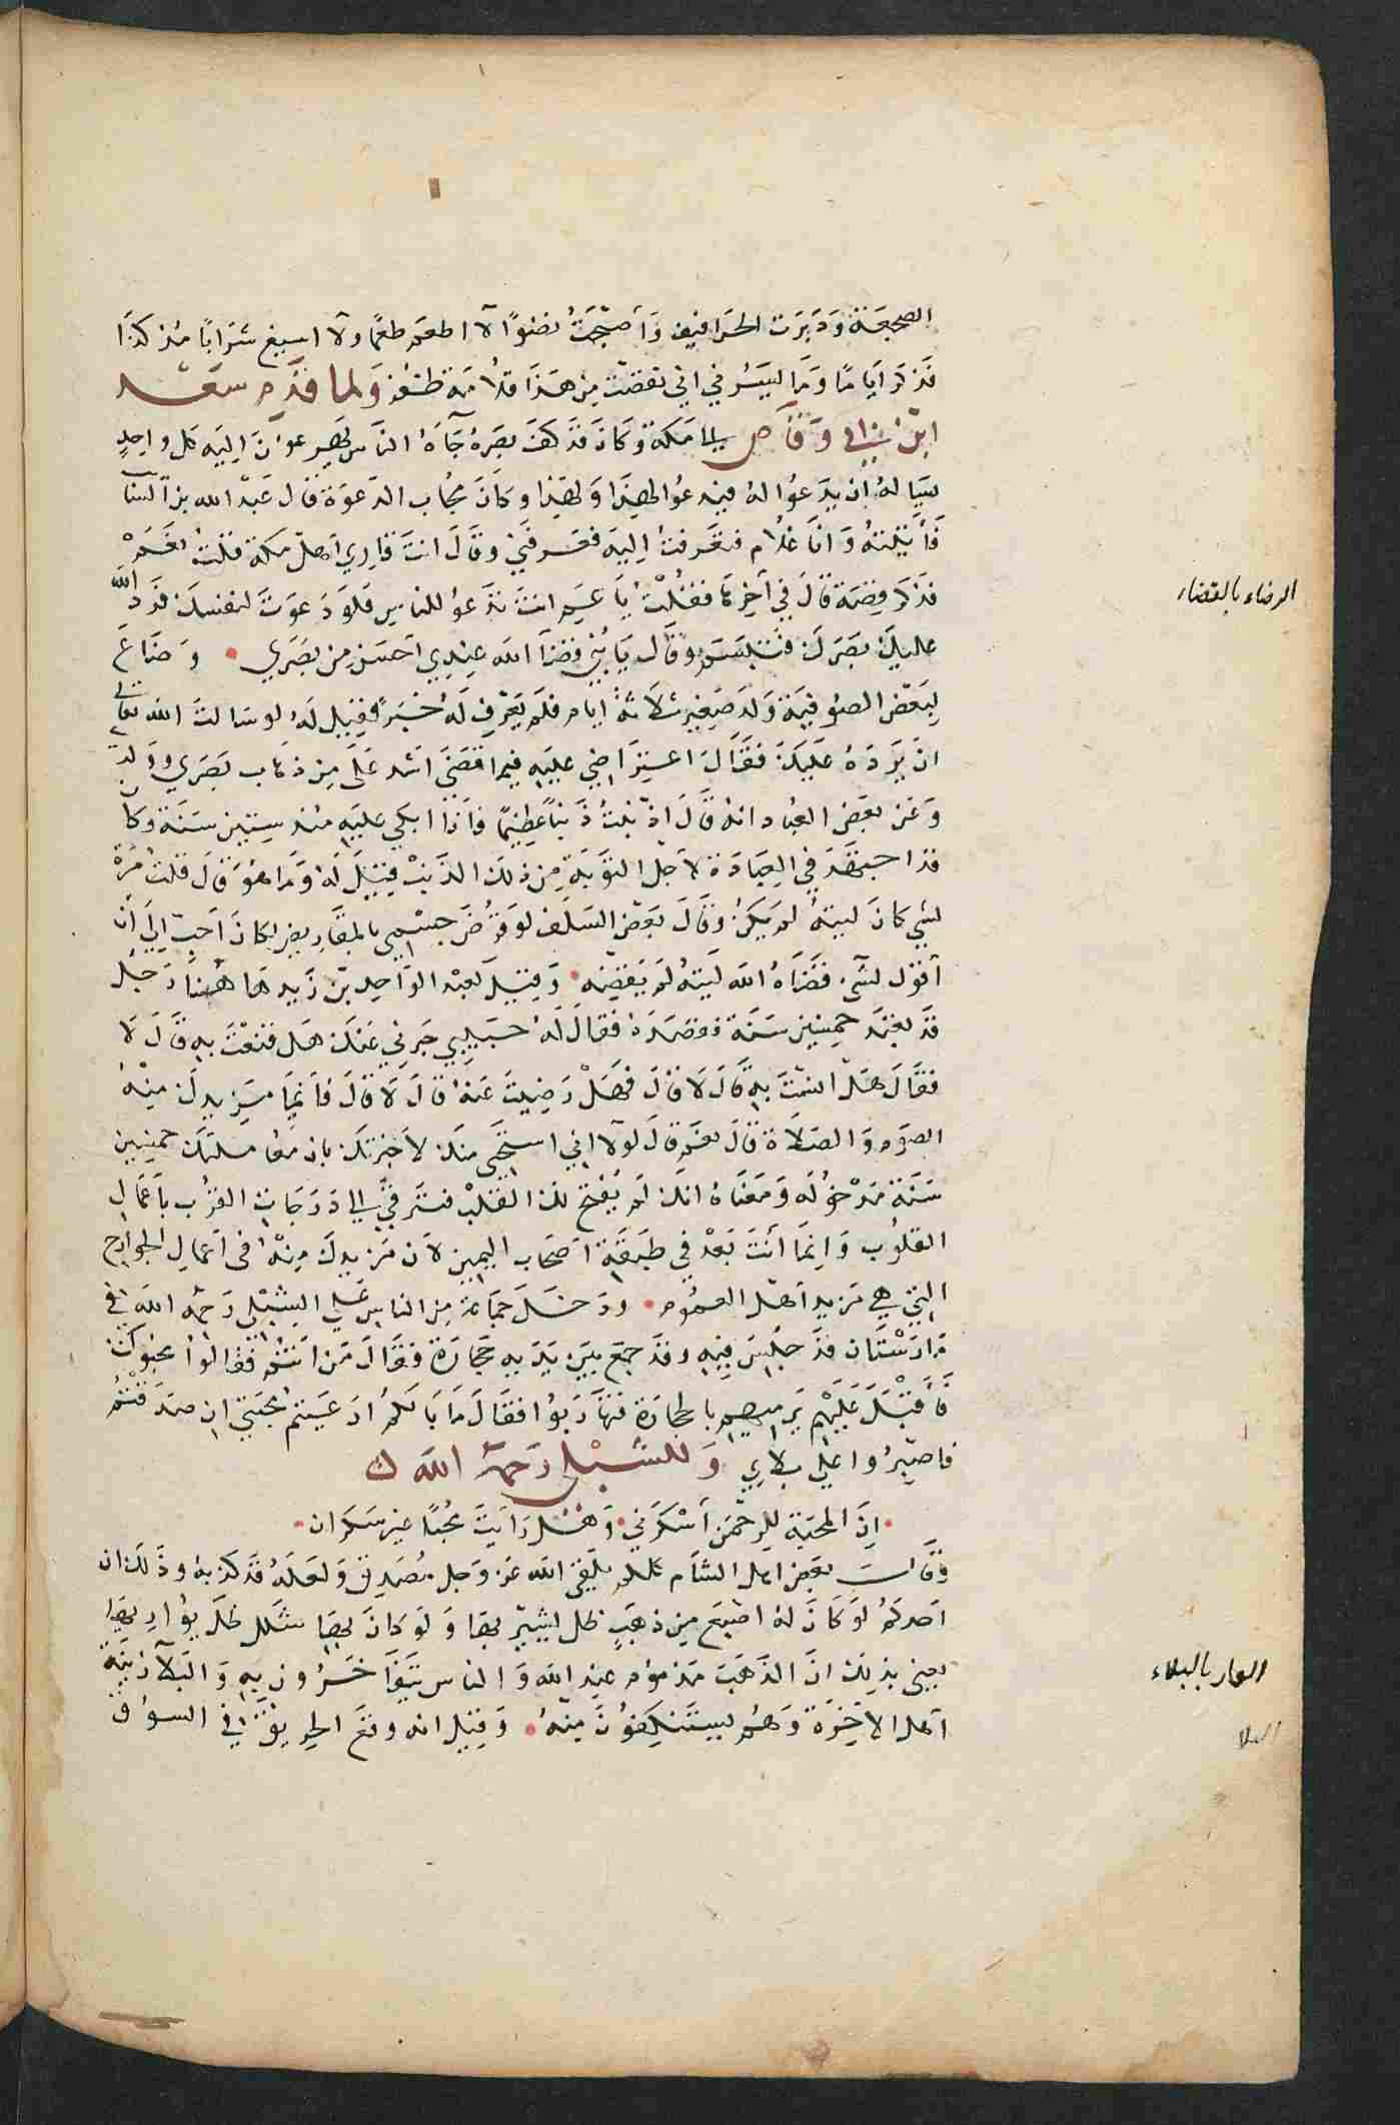 الضجعة ودبرت الحراقيف وأصبحت نضوًا لا اطعم طعمًا ولا اسيغ شرابًا منذ كذا
فذكر ايامًا وما ليسرني اني نقصت من هذا قلامة ظفر ولما قدم سعد
ابن ابي وقاص الى مكة وكان قد كف بصره جآءه الناس يهرعون اليه كل واحد
يساله ان يدعوا له فيدعوا لهذا ولهذا وكان مجاب الدعوة قال عبد الله بن السا
فأتيته وانا غلام فتعرفت اليه فعرفني وقال انت قاري اهل مكة قلت نعم
فذكر قصة قال في آخرها فقلت يا عم انت تدعو للناس فلو دعوت لنفسك فرد الله
عليك بصرك فتبسم وقال يا بني قضآ الله عندي احسن من بصري • وضاع
لبعض الصوفية ولد صغير ثلاثة ايام فلم يعرف له خبر فقيل له لو سالت الله تعالى
ان يرده عليك فقال اعتراضي عليه فيما قضى اشد على من ذهاب بصري وولدي
وعن بعض العباد انه قال اذنبت ذنبًا عظيمًا فاذا ابكي عليه منذ ستين سنة وكان
قد اجتهد في العبادة لاجل التوبة من ذلك الذنب فقيل له وما هو قال قلت مرة
لشي كان ليته لم يكن وقال بعض السلف لو قرض جسمي بالمقاريض لكان احب الي أن
أقول لشيء قضاه الله ليته لم يقضه • وقيل لعبد الواحد بن زيد هاهنا رجل
قد تعبد خمسين سنة فقصده فقال له حبيبي خبرني عنك هل قنعت به قال لا
فقال هل انست به قال لا قال فهل رضيت عنه قال لا قال فانما مزيدك منه
الصوم والصلاة قال نعم قال لولا اني استحي منك لاخبرتك بان معاملتك خمسين
سنة مدخوله ومعناه انك لم يفتح لك القلب فتترقى الى درجات القرب باعمال
القلوب وانما أنت بعد في طبقة اصحاب اليمين لان مزيدك منه في اعمال الجوارح
التي هي مزيد اهل العموم • ودخل جماعة من الناس على الشبلي رحمه الله في
مارستان قد حبس فيه وقد جمع بين يديه حجارة فقال من انتم فقالوا محبوك
فأقبل عليهم يرميهم بالحجارة فتهاربوا فقال ما بالكم ادعيتم محبتي ان صدقتم
فاصبروا على بلاءي وللشبلي رحمه الله
• ان المحبة للرحمن أسكرني • وهل رأيت محبًا غير سكران •
وقال بعض اهل الشام كلكم يلقى الله عز وجل مصدق ولعله قد كذبه وذلك ان
احدكم لو كان له اصبع من ذهب ظل يشير بها ولو كان بها شلل ظل يواريها
يعني بذلك ان الذهب مذموم عند الله والناس يتفاخرون به والبلآ زينة
اهل الاخرة وهم يستنكفون منه • وقيل انه وقع الحريق في السوق
الرضاء بالقضاء
العار بالبلاء
البلا